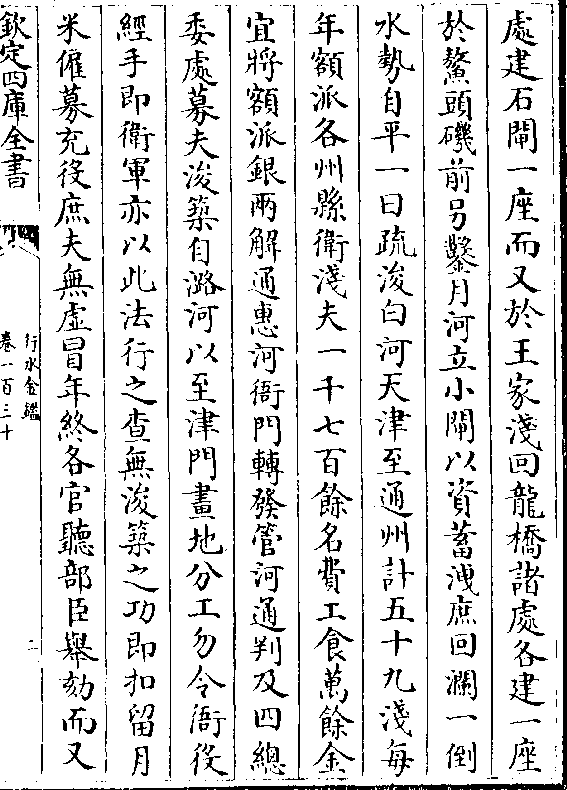 處建石閘一座而又於王家淺回龍橋諸處各建一座
於鰲頭磯前另鑿月河立小閘以資蓄洩庶回瀾一倒
水勢自平一曰疏浚白河天津至通州計五十九淺每
年額派各州縣衛淺夫一千七百餘名費工食萬餘金
宜將額派銀兩解通惠河衙門轉發管河通判及四總
委處募夫浚築自潞河以至津門畫地分工勿令衙役
經手即衛軍亦以此法行之查無浚築之功即扣留月
米僱募充役庶夫無虛冒年終各官聽部臣舉劾而又
欽定四庫全書
行水金鑑
卷一百三十
二